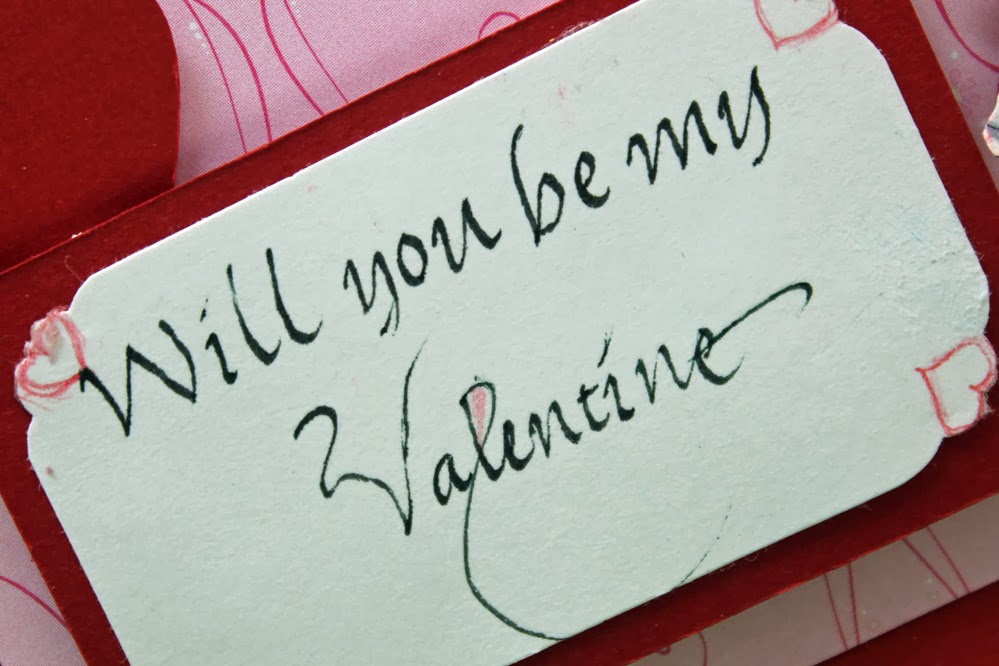 Will you be my
Valentine